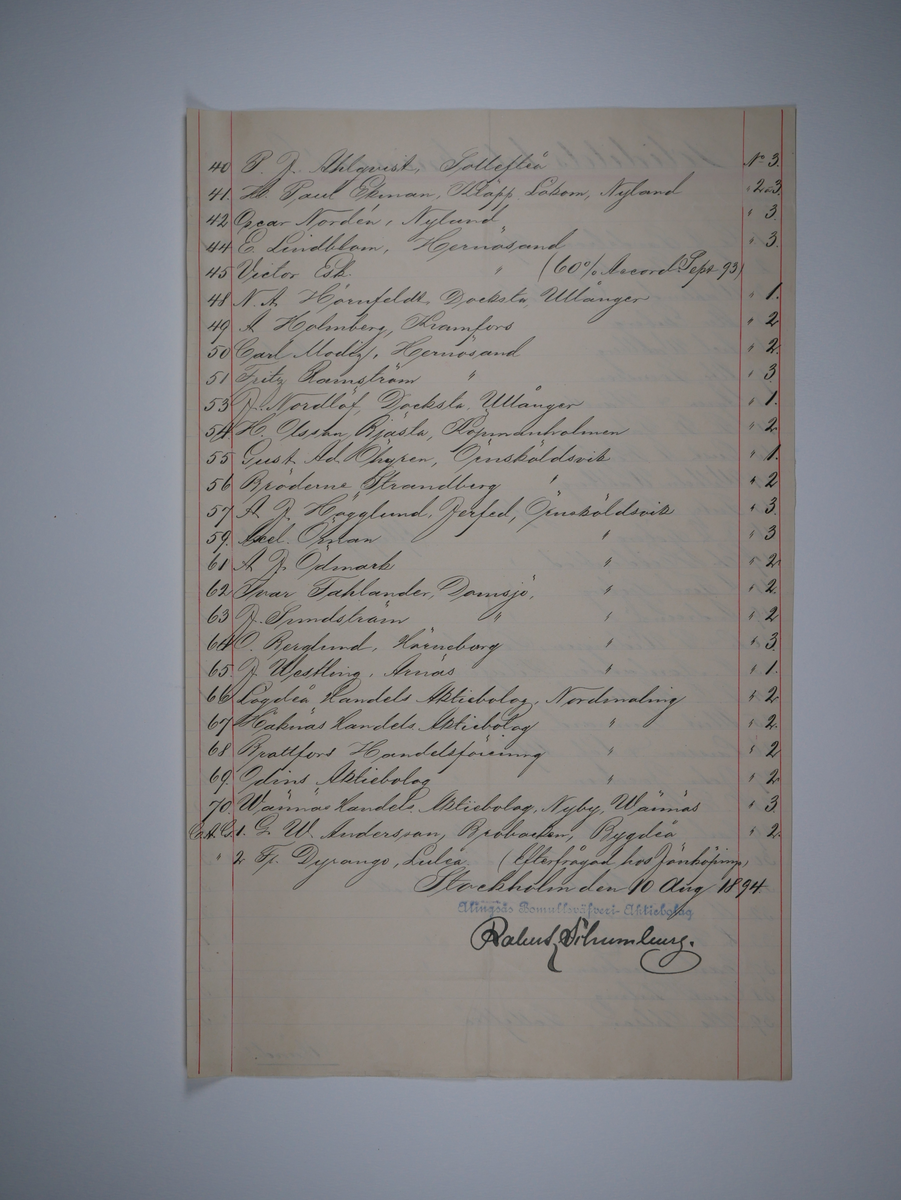 40 P. J. Ahlqvist, Sollefteå No 3.
41. H. Paul Ekman, Kläpp, Lökom, Nyland " 2 à 3
42 Oscar Nordén, Nyland " 3.
44 E. Lindblom, Hernösand " 3.
45 Victor Esk. " (60% Accord Sept 93)
48 N. A. Hörnfeldt, Docksta, Ullånger " 1.
49 A. Holmberg, Kramfors " 2
50 Carl Hernösand " 2.
51 Fritz Ramström " " 3
53 J. Nordlöf, Docksta, Ullånger " 1.
54 H. Bjästa, Köpmanholmen " 2
55 Gust. Ad. Örnsköldsvik " 1.
56 Bröderne Strandberg " " 2
57 A. J. Högglund, Jerfed, Örnsköldsvik " 3.
59. Axel Öhman " " 3
61 A. J. Ödmark " " 2
62 Ivar Tahlander, Domsjö, " " 2.
63 J. Sundström " " " 2
64 O. Berglund, Hörneborg " " 3
65. J. Westling, Arnäs " " 1.
66 Lögdeå Handels Aktiebolag, Nordmaling " 2
67 Håknäs Handels Aktiebolag " " 2.
68 Brattfors Handelsförening " " 2
69. Odins Aktiebolag " " 2
70. Wännäs Handels Aktiebolag, Nyby, Wännäs " 3
1. G. W. Andersson, Bobacken, Bygdeå " 2.
" 2 Fr. Dyrango, Luleå. (Efterfrågad hos Jönköping,
Stockholm den 10 Aug 1894.
Alingsås Bomullsväfveri-Aktiebolag
Robert Schumburg.